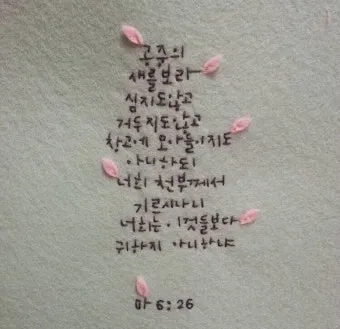 공중의
새를보라
심지도않고
거두지도않고
창고에 모아들이지도
아니하되
너희 천부께서
기르시나니
너희는 이것들보다
귀하지 아니하냐
마 6:26